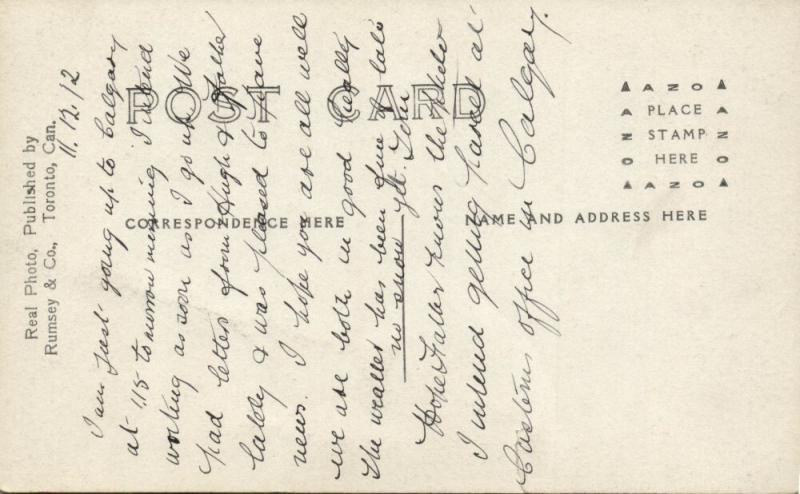 Real Photo, Published by
Rumsey & Co., Toronto, Can.
11.12.12
POST CARD
CORRESPONDENCE HERE
NAME AND ADDRESS HERE
AZO
PLACE
STAMP
HERE
AZO
I am just going up to Calgary
at 1.15 to morrow morning I intend
working as soon as I go up. We
had letters from Hugh &
lately & was pleased to have
news. I hope you are all well
we are both in good health
the weather has been fine to late
no snow yet. John
Hope knows the
I intend getting parcel at
Customs office in Calgary.